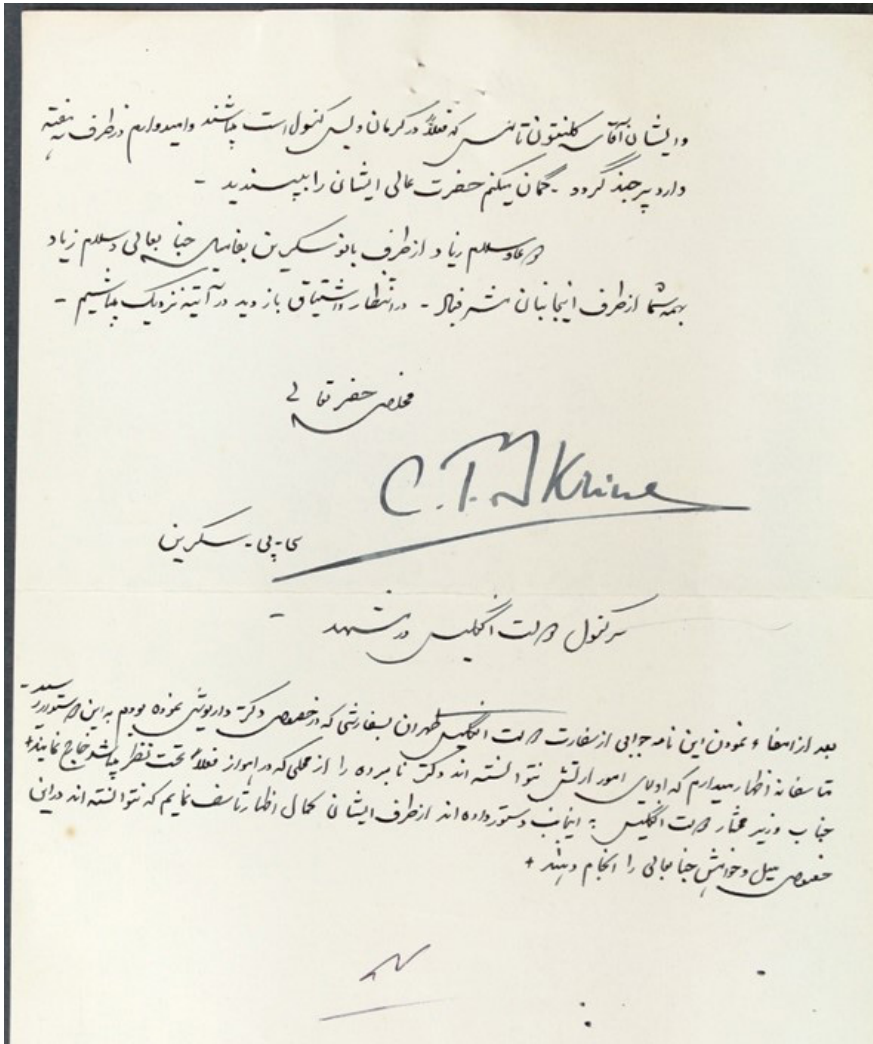 و ایشان آقای کلنتون تامس که فعلاً در کرمان ویس کنسول است میباشند و امیدوارم در ظرف سه هفته
وارد بیرجند گردد - گمان میکنم حضرت عالی ایشان را بپسندید -
دعا و سلام زیاد از طرف بانو سکرین بفامیلی جنابعالی و سلام زیاد
بهمه شما از طرف اینجانبان مشرفباد - در انتظار و اشتیاق بازدید در آتیه نزدیک میباشیم -
مخلص حضرتعالی
C. P. Skrine
سی - پی - سکرین
سرکنسول دولت انگلیس در مشهد -
بعد از امضاء نمودن این نامه جوابی از سفارت دولت انگلیس طهران بسفارشی که در خصوص دکتر داریوش نموده بودم به این دستور رسید -
متاسفانه اظهار میدارم که اولیای امور ارتش نتوانسته اند دکتر نامبرده را از محلی که در اهواز فعلاً تحت نظر میباشد خارج نمایند +
جناب وزیر مختار دولت انگلیس به اینجانب دستور داده اند از طرف ایشان کمال اظهار تاسف نمایم که نتوانسته اند در این
خصوص میل و خواهش جنابعالی را انجام دهند +